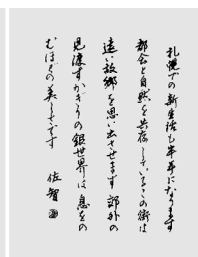 札幌での新生活も半年になります
都会と自然を共存しているこの街は
遠い故郷を思い出させます 郊外の
見渡すかぎりの銀世界は 息をの
むほどの美しさです
佐智